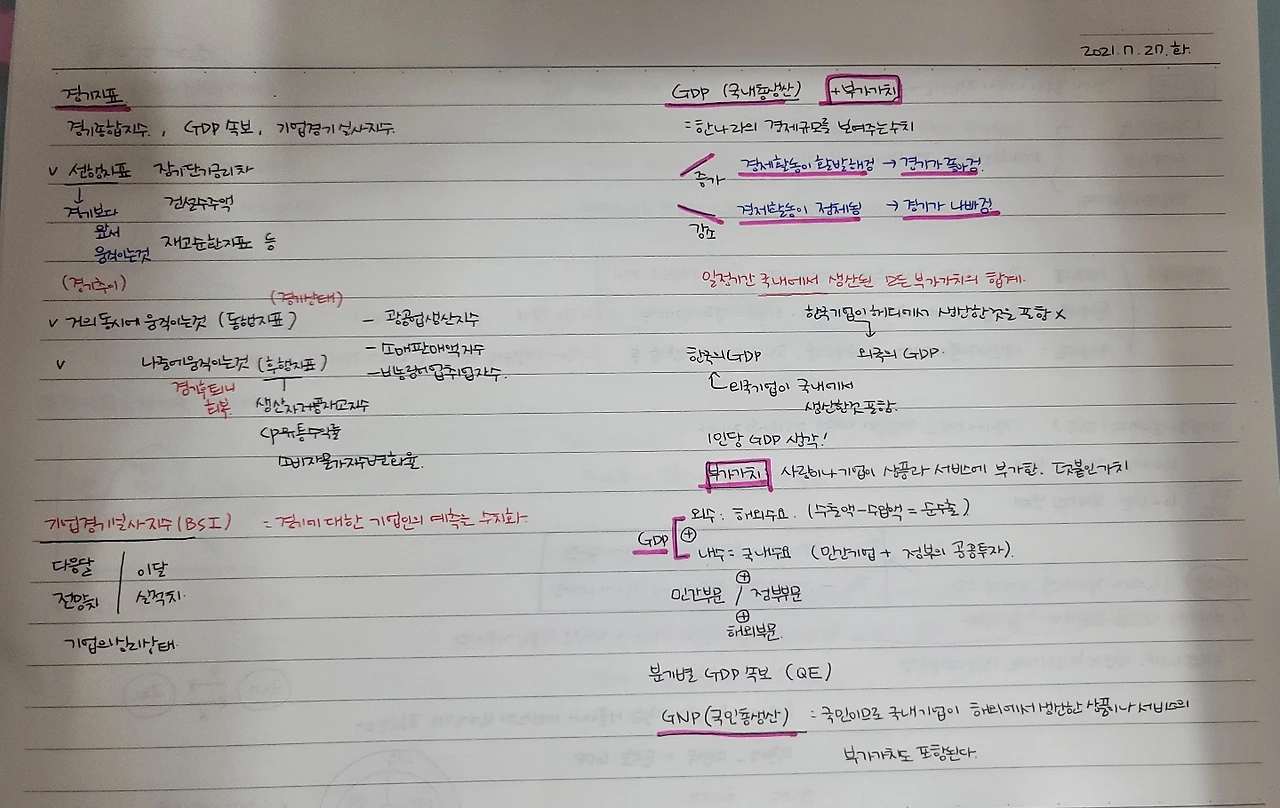 2021.7.27.화.
경기지표
경기종합지수, GDP 속보, 기업경기실사지수.
v 선행지표 장기단기금리차
↓
경기보다 건설수주액
앞서
움직이는것 재고순환지표 등
(경기추이)
(경기상태)
v 거의 동시에 움직이는것 (동행지표) - 광공업생산지수
- 소매판매액지수
- 비농림어업취업자수.
v 나중에 움직이는것 (후행지표)
경기후퇴냐
회복
생산자제품재고지수
CP유통수익률
소비자물가지수변화율.
기업경기실사지수(BSI) = 경기에 대한 기업인의 예측을 수치화.
다음달 이달
전망치 실적치.
기업의심리상태.
GDP (국내총생산) +부가가치
= 한나라의 경제규모를 보여주는수치
증가 경제활동이 활발해짐 → 경기가 좋아짐.
감소 경제활동이 정체됨 → 경기가 나빠짐.
일정기간 국내에서 생산된 모든 부가가치의 합계.
한국기업이 해외에서 생산한것을 포함 x
↓
한국의GDP 외국의 GDP.
외국기업이 국내에서
생산한것 포함.
1인당 GDP 생각!
부가가치 사람이나 기업이 상품과 서비스에 부가한. 덧붙인가치
GDP
외수: 해외수요. (수출액-수입액 = 순수출)
+
내수= 국내수요 (민간기업 + 정부의 공공투자).
+
민간부문 / 정부부문
+
해외부문.
분기별 GDP 속보 (QE)
GNP(국민총생산) : 국민이므로 국내기업이 해외에서 생산한 상품이나 서비스의
부가가치도 포함된다.